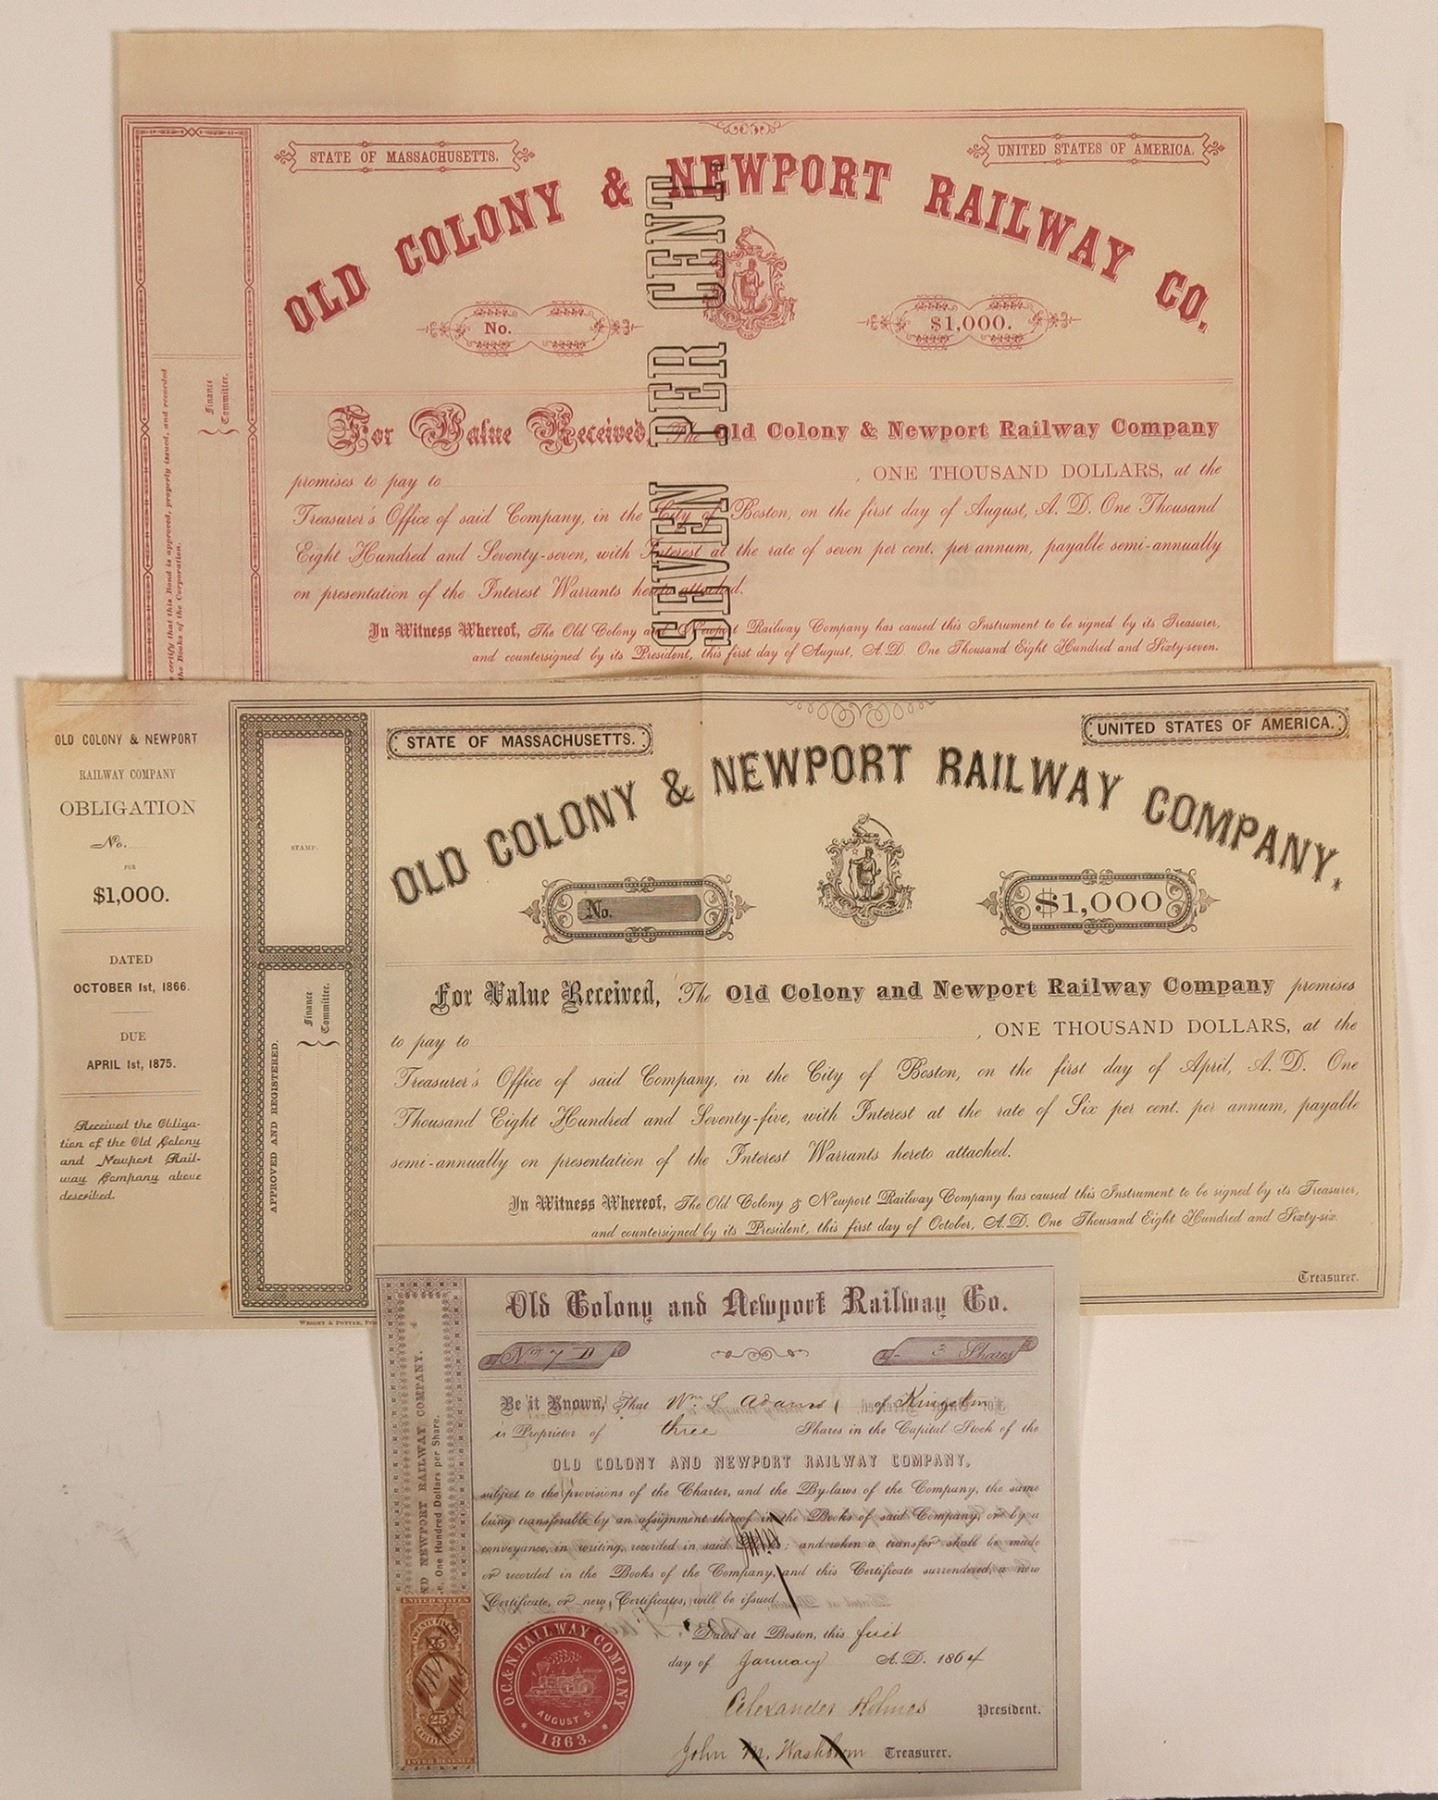 STATE OF MASSACHUSETTS.
UNITED STATES OF AMERICA.
OLD COLONY & NEWPORT RAILWAY CO.
No.
$1,000.
SEVEN PER CENT
Finance Committee.
certify that this Bond is approved, properly issued, and recorded
the Books of the Corporation.
For Value Received, The Old Colony & Newport Railway Company
promises to pay to , ONE THOUSAND DOLLARS, at the
Treasurer's Office of said Company, in the City of Boston, on the first day of August, A. D. One Thousand
Eight Hundred and Seventy-seven, with Interest at the rate of seven per cent. per annum, payable semi-annually
on presentation of the Interest Warrants hereto attached.
In Witness Whereof, The Old Colony and Newport Railway Company has caused this Instrument to be signed by its Treasurer,
and countersigned by its President, this first day of August, A. D. One Thousand Eight Hundred and Sixty-seven.
OLD COLONY & NEWPORT
RAILWAY COMPANY
OBLIGATION
No.
FOR
$1,000.
DATED
OCTOBER 1st, 1866.
DUE
APRIL 1st, 1875.
Received the Obliga-
tion of the Old Colony
and Newport Rail-
way Company above
described.
STAMP.
APPROVED AND REGISTERED.
Finance
Committee.
WRIGHT & POTTER,
STATE OF MASSACHUSETTS.
UNITED STATES OF AMERICA.
OLD COLONY & NEWPORT RAILWAY COMPANY.
No.
$1,000
For Value Received, The Old Colony and Newport Railway Company promises
to pay to , ONE THOUSAND DOLLARS, at the
Treasurer's Office of said Company, in the City of Boston, on the first day of April, A. D. One
Thousand Eight Hundred and Seventy-five, with Interest at the rate of Six per cent. per annum, payable
semi-annually on presentation of the Interest Warrants hereto attached.
In Witness Whereof, The Old Colony & Newport Railway Company has caused this Instrument to be signed by its Treasurer,
and countersigned by its President, this first day of October, A. D. One Thousand Eight Hundred and Sixty-six.
Treasurer.
Old Colony and Newport Railway Co.
No. 7 D
3 Shares
Be it Known, That Wm S Adams of Kingston
is Proprietor of three Shares in the Capital Stock of the
OLD COLONY AND NEWPORT RAILWAY COMPANY,
subject to the provisions of the Charter, and the By-laws of the Company, the same
being transferable by an assignment thereof in the Books of said Company, or by a
conveyance, in writing, recorded in said ; and when a transfer shall be made
or recorded in the Books of the Company, and this Certificate surrendered, a new
Certificate, or new Certificates, will be issued.
Dated at Boston, this first
day of January A. D. 1864
Alexander Holmes President.
John M. Washburn Treasurer.
ND NEWPORT RAILWAY COMPANY.
One Hundred Dollars per Share.
UNITED STATES
25
25
INTER REVENUE
O.C. & N RAILWAY COMPANY
AUGUST 5.
1863.